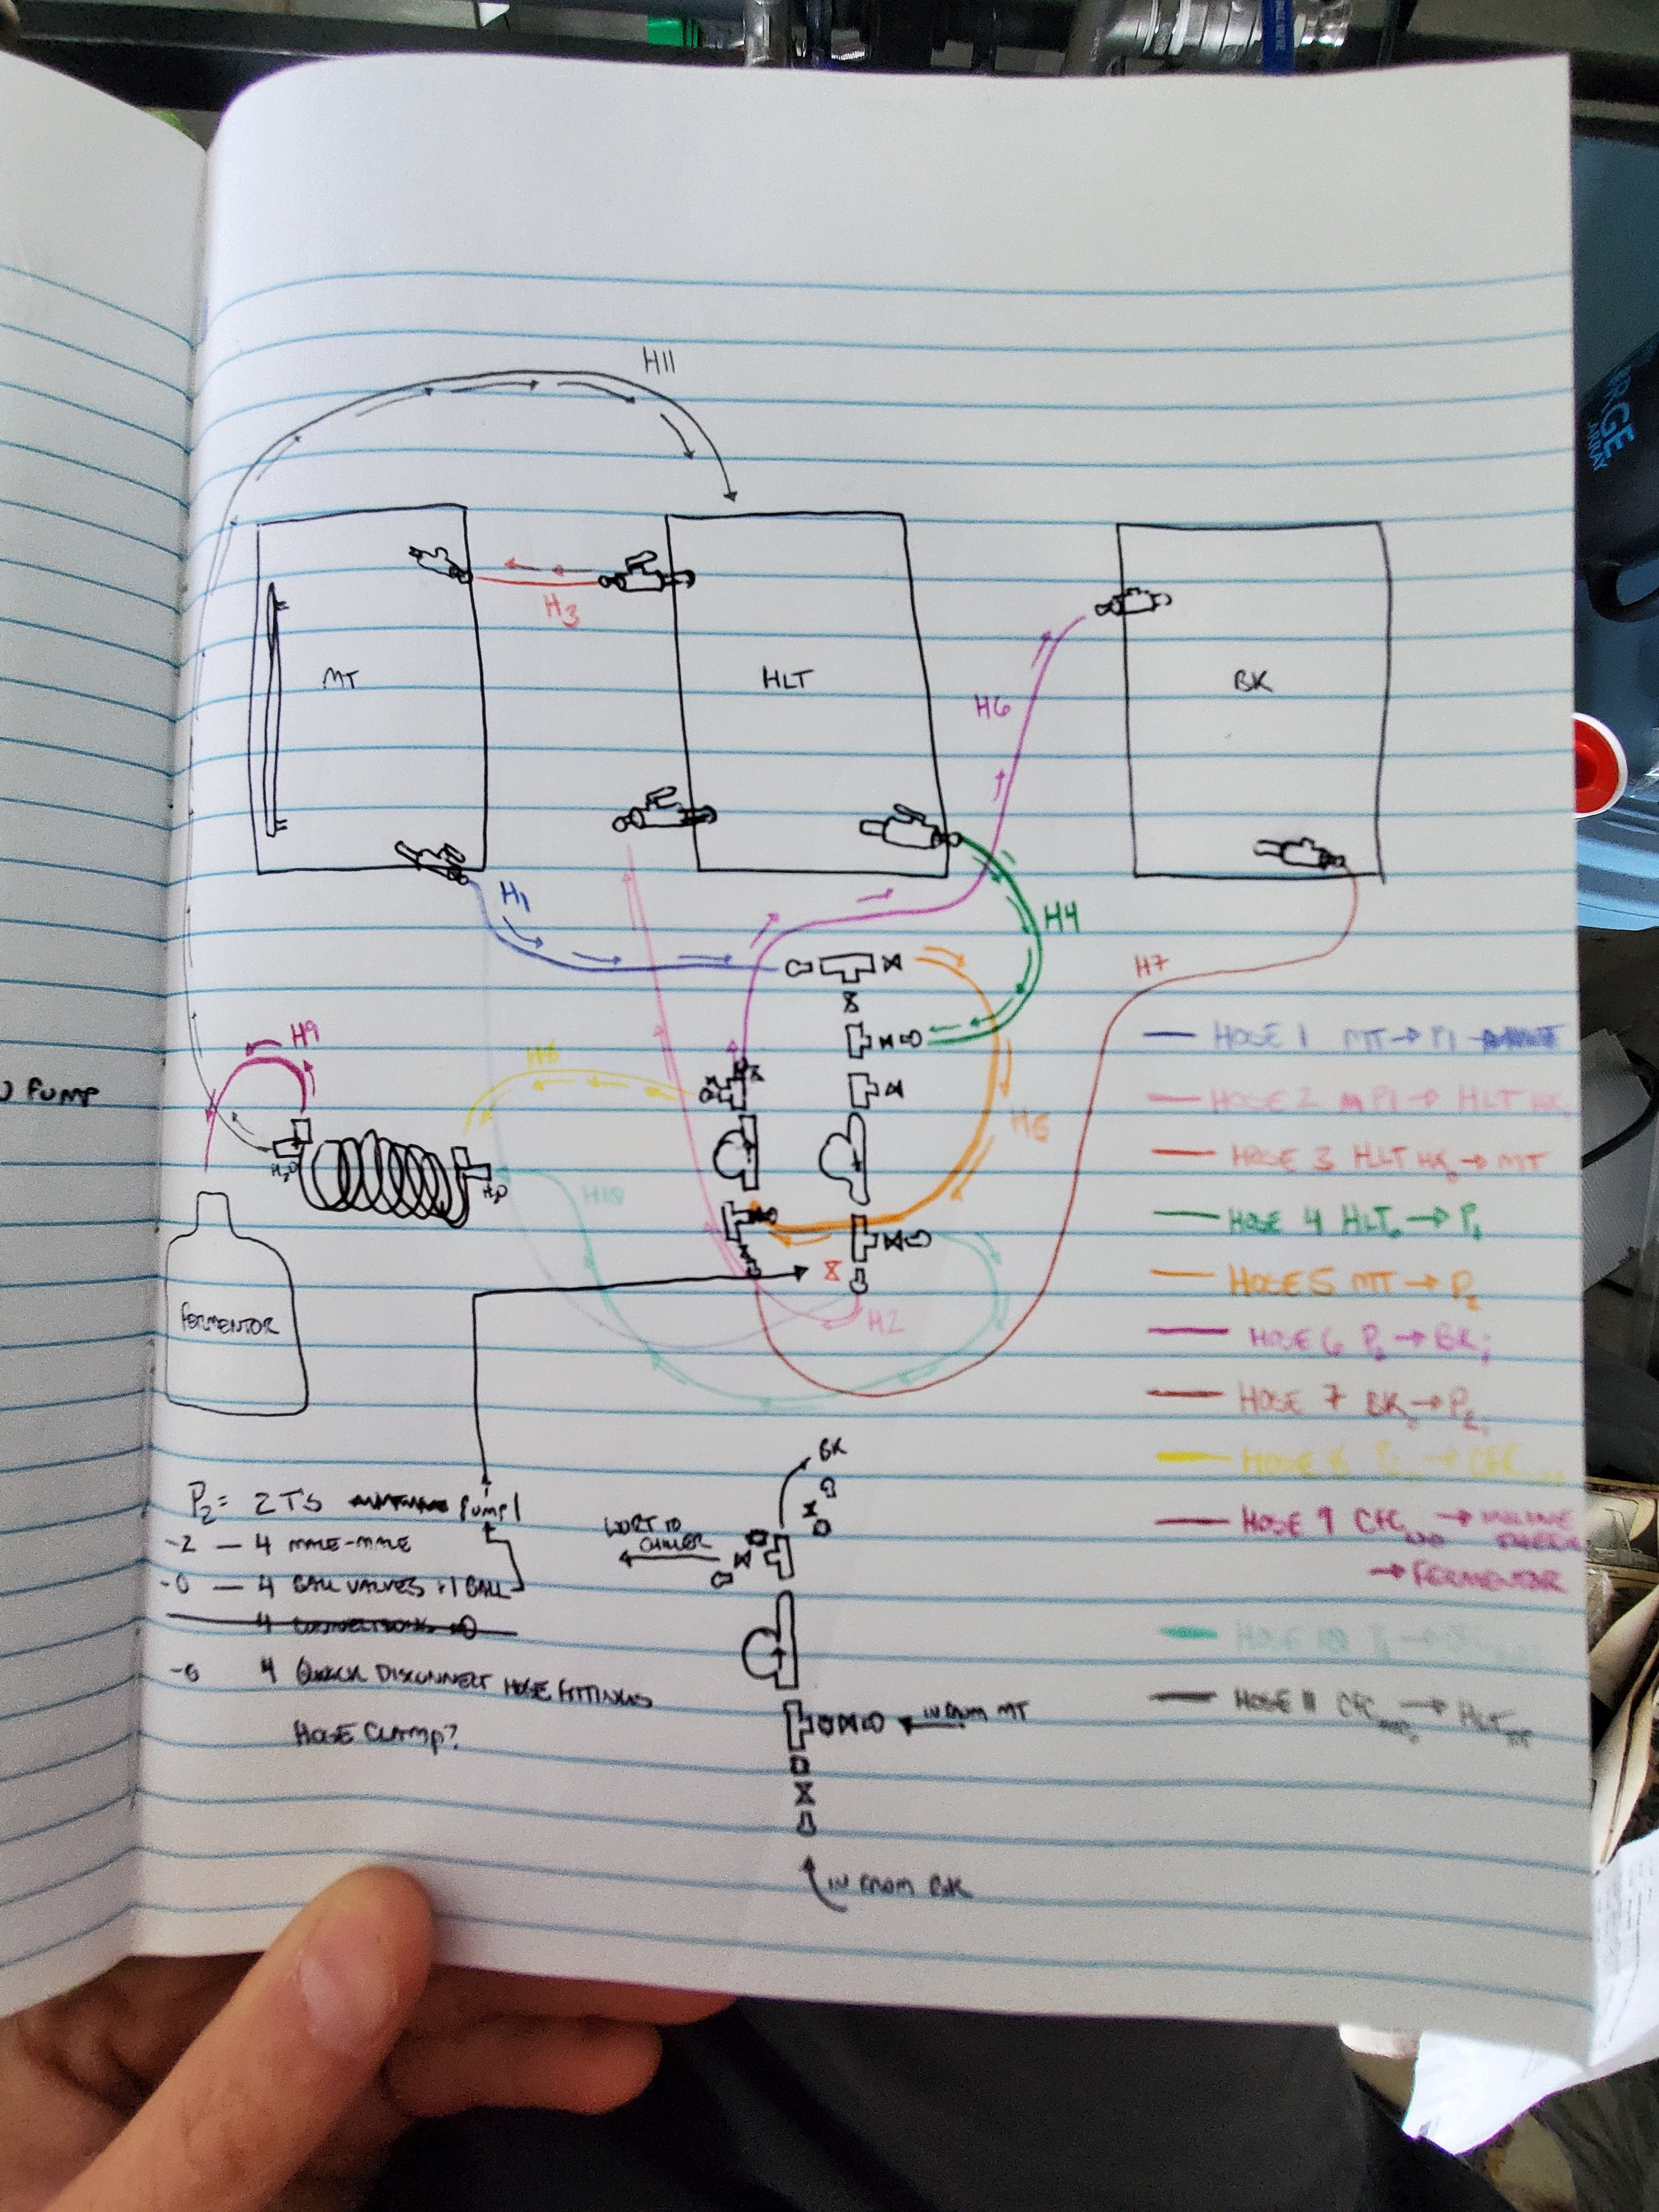 H11
H3
MT
HLT
BK
H6
H1
H4
H7
H9
H8
) PUMP
H5
H10
H2O
H2O
FERMENTOR
H2
HOSE 1 MT → P1
HOSE 2 P1 → HLT
HOSE 3 HLT → MT
HOSE 4 HLTo → P1
HOSE 5 MT → P2
HOSE 6 P2 → BKi
HOSE 7 BKo → P2i
HOSE 8 → CFC
HOSE 9 CFC →
→ FERMENTOR
HOSE 10 P1 →
HOSE 11 CFC → HLT
BK
WORT TO
CHILLER
P2 = 2 T'S PUMP 1
-2 — 4 MALE-MALE
-0 — 4 BALL VALVES +1 BALL
4 CONNECTIONS
-6 4 QUICK DISCONNECT HOSE FITTINGS
HOSE CLAMP?
IN FROM MT
IN FROM BK